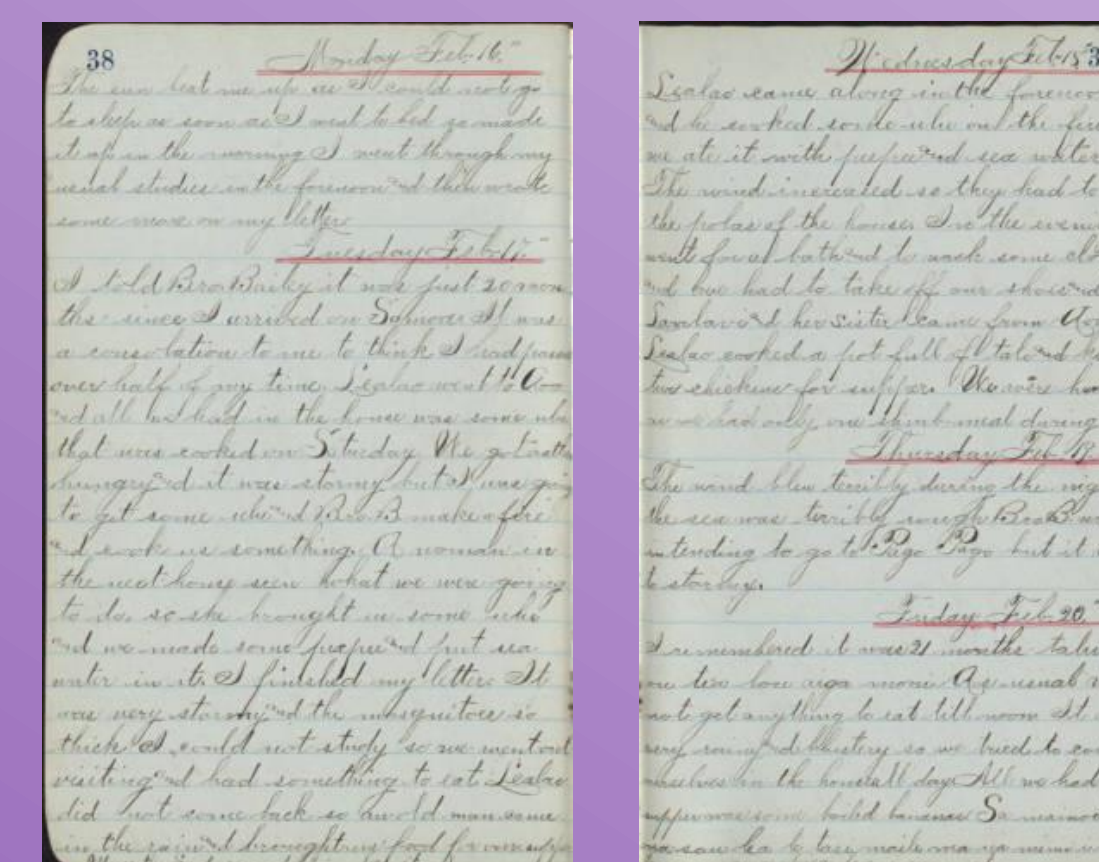 38
Monday Feb. 16"
The sun beat me up as I could not go
to sleep as soon as I went to bed so made
it up in the morning I went through my
usual studies in the forenoon and then wrote
some more on my letter
Tuesday Feb. 17"
I told Bro Bailey it was just 20 mon
ths since I arrived on Samoa It was
a consolation to me to think I had passed
over half of my time. Lealao went to
and all we had in the house was some ulu
that was cooked on Saturday We got
hungry and it was stormy but I was going
to get some ulu and Bro. B make a fire
and cook us something. A woman in
the next house seen what we were going
to do, so she brought us some ulu
and we made some and put sea
water in it. I finished my letter. It
was very stormy and the mosquitoes so
thick I could not study so we went out
visiting and had something to eat Lealao
did not come back so an old man came
in the rain and brought us food for our
Wednesday Feb 18" 3
Lealao came along in the forenoon
and he cooked some ulu on the fire
we ate it with and sea water
The wind increased so they had to
the polas of the house. In the even
went for a bath and to wash some clo
and we had to take off our shoes and
and her sister came from
Lealao cooked a pot full of talo and
two chickens for supper. We were
as we had only one meal during
Thursday Feb. 19
The wind blew terribly during the nig
the sea was terribly rough Bro B. w
intending to go to Pago Pago but it
to stormy.
Friday Feb. 20"
I remembered it was 21 months
As usual
not get anything to eat till noon It
very rainy and blustery so we tried to
ourselves in the house all day All we had
supper was some boiled bananas